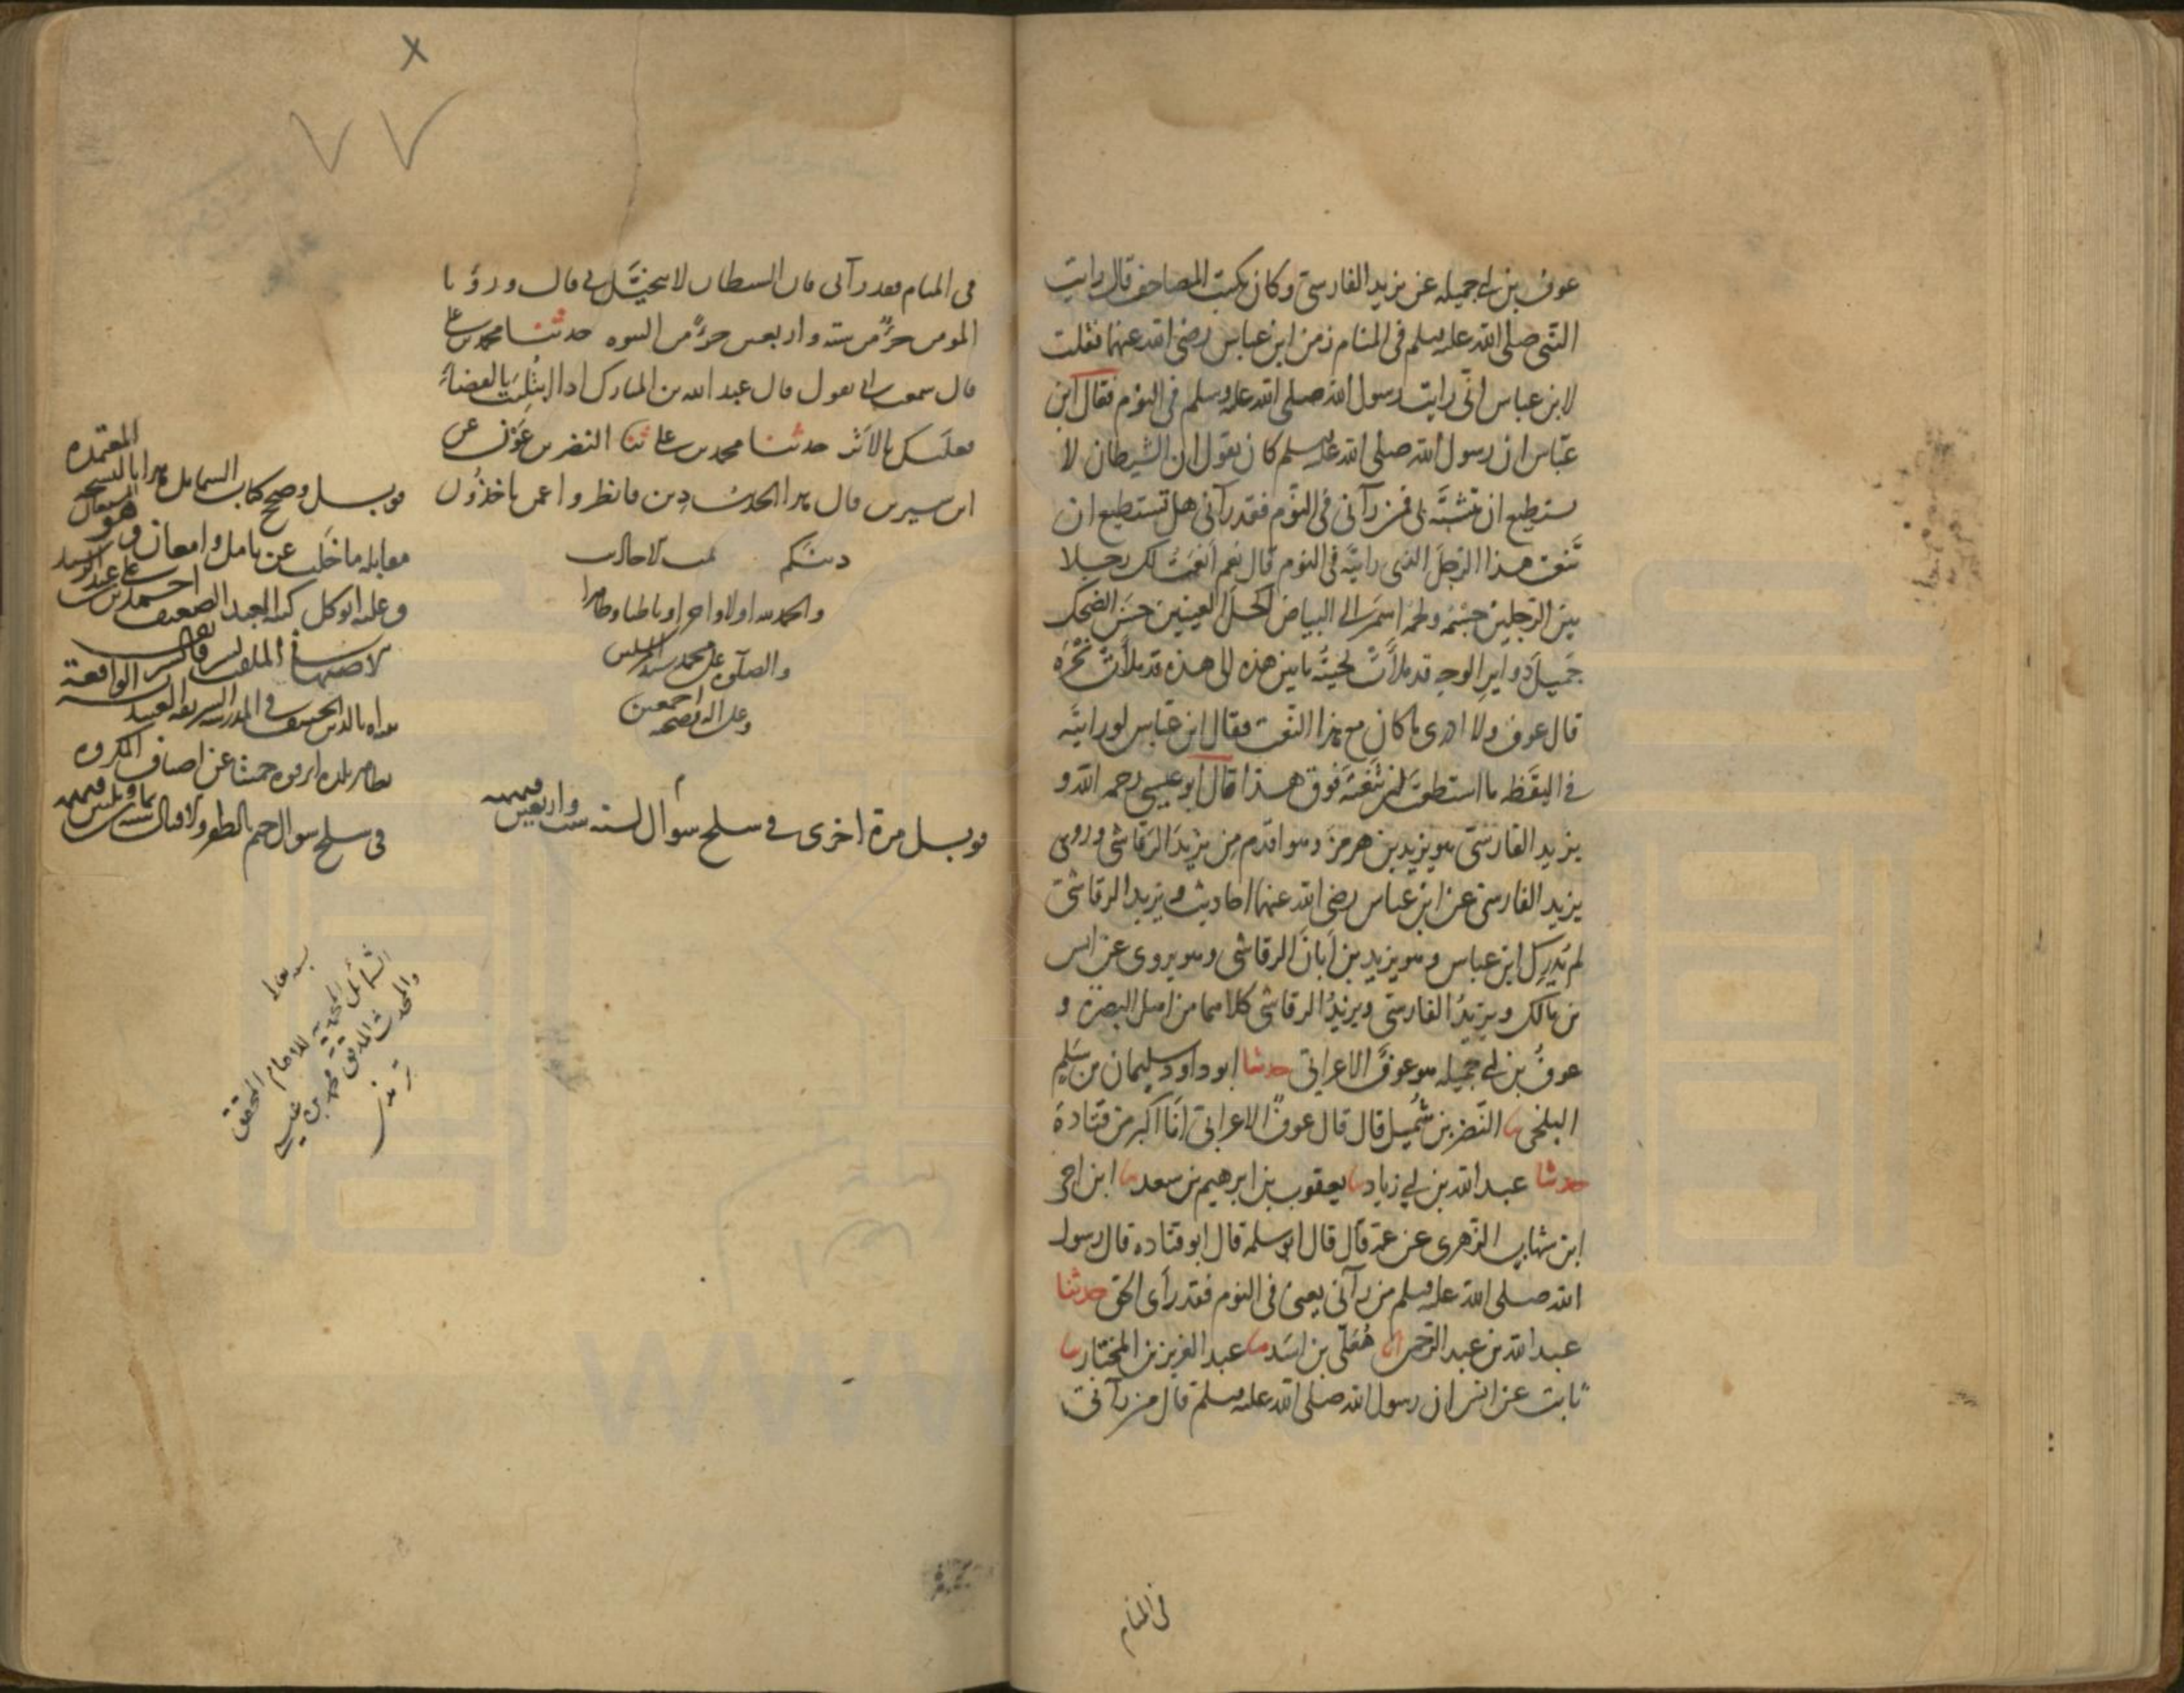 عوف بن ابي جميله عن يزيد الفارسي وكان يكتب المصاحف قال رايت
النبي صلى الله عليه وسلم في المنام زمن ابن عباس رضي الله عنهما فقلت
لابن عباس اني رايت رسول الله صلى الله عليه وسلم في النوم فقال ابن
عباس ان رسول الله صلى الله عليه وسلم كان يقول ان الشيطان لا
يستطيع ان يتشبه بي فمن رآني في النوم فقد رآني هل تستطيع ان
تنعت هذا الرجل الذي رايته في النوم قال نعم انعت لك رجلا
بين الرجلين جسمه ولحمه اسمر الى البياض اكحل العينين حسن الضحك
جميل دواير الوجه قد ملأت لحيته ما بين هذه الى هذه قد ملأت نحره
قال عوف ولا ادري ما كان مع هذا النعت فقال ابن عباس لو رايته
في اليقظه ما استطعت ان تنعته فوق هذا قال ابو عيسى رحمه الله و
يزيد الفارسي هو يزيد بن هرمز وهو اقدم من يزيد الرقاشي وروى
يزيد الفارسي عن ابن عباس رضي الله عنهما احاديث ويزيد الرقاشي
لم يدرك ابن عباس وهو يزيد بن ابان الرقاشي وهو يروي عن انس
بن مالك ويزيد الفارسي ويزيد الرقاشي كلاهما من اهل البصرة و
عوف بن ابي جميله هو عوف الاعرابي حدثنا ابو داود سليمان بن سلم
البلخي نا النضر بن شميل قال قال عوف الاعرابي انا اكبر من قتادة
حدثنا عبد الله بن ابي زياد نا يعقوب بن ابرهيم بن سعد نا ابن اخي
ابن شهاب الزهري عن عمه قال قال ابو سلمه قال ابو قتاده قال رسول
الله صلى الله عليه وسلم من رآني يعني في النوم فقد رأى الحق حدثنا
عبد الله بن عبد الرحمن انا معلى بن اسد نا عبد العزيز بن المختار نا
ثابت عن انس ان رسول الله صلى الله عليه وسلم قال من رآني
في المنام
في المنام فقد رآني فان الشيطان لا يتخيل بي قال ورؤيا
المومن جزء من ستة واربعين جزء من النبوه حدثنا محمد بن علي
قال سمعت ابي يقول قال عبد الله بن المبارك اذا ابتليت بالقضاء
فعليك بالاثر حدثنا محمد بن علي ثنا النضر بن عون عن
ابن سيرين قال هذا الحديث دين فانظروا عمن تاخذون
دينكم تمت الاحاديث
والحمد لله اولا واخرا وباطنا وظاهرا
والصلوة على محمد سيد المرسلين
وعلى اله وصحبه اجمعين
قوبل مرة اخرى في سلخ شوال لسنه ست واربعين
قوبل وصحح كتاب الشمايل هذا بالنسخه المعتمده
مقابله ما خلت عن تامل وامعان وهو المستعان
وعليه اتوكل كتبه العبد الضعيف احمد بن علي
في سلخ شوال ختم بالظفر والاقبال
الشمائل المحمدية للامام المحقق
والمحدث المدقق محمد بن عيسى
ترمذي